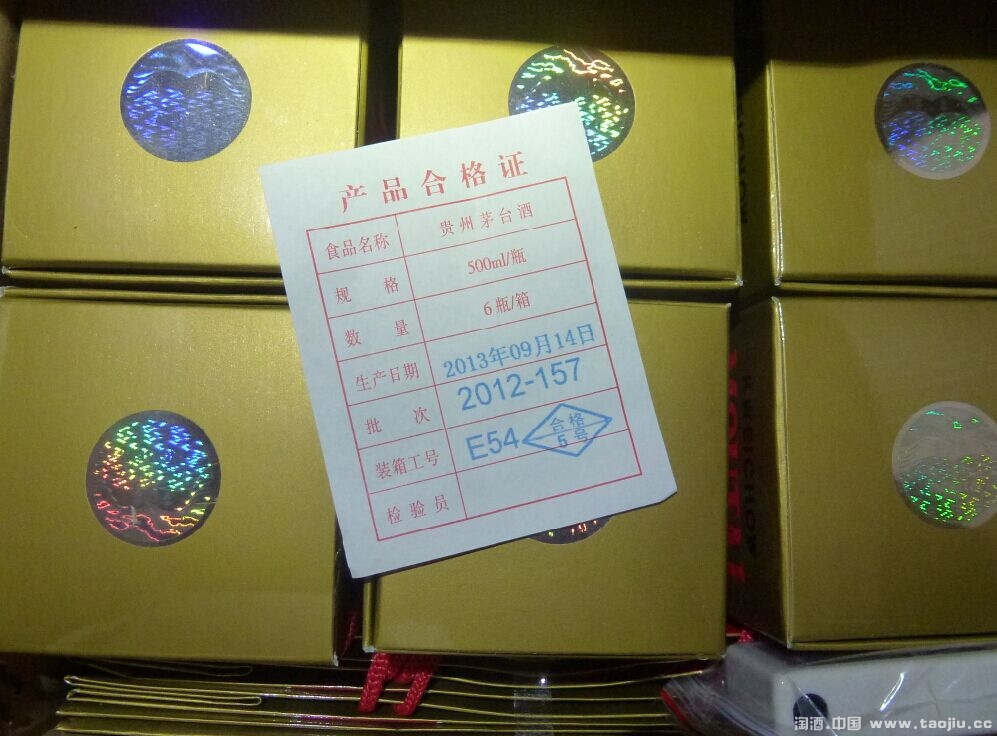 产品合格证
食品名称 贵州茅台酒
规 格 500ml/瓶
数 量 6瓶/箱
生产日期 2013年09月14日
批 次 2012-157
装箱工号 E54
合格
5号
检验员
KWEICHOW
淘酒.中国 www.taojiu.cc